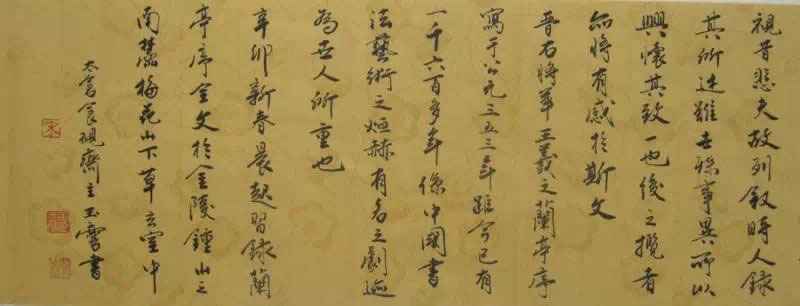 視昔悲夫故列叙時人錄
其所述雖世殊事異所以
興懷其致一也後之攬者
亦將有感於斯文
晉右將軍王羲之蘭亭序
寫于公元三五三年距今已有
一千六百多年係中國書
法藝術之烜赫有名之劇迹
為世人所重也
辛卯新春晨起習錄蘭
亭序全文於金陵鍾山之
南麓梅花山下草玄室中
太倉食硯齋主玉雪書